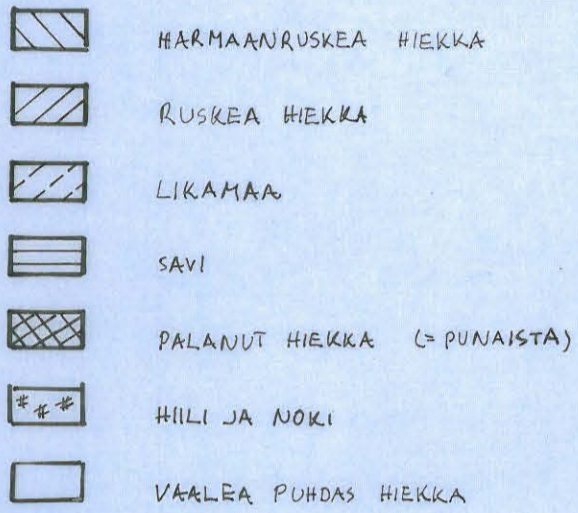 HARMAANRUSKEA HIEKKA
RUSKEA HIEKKA
LIKAMAA
SAVI
PALANUT HIEKKA (= PUNAISTA)
HIILI JA NOKI
VAALEA PUHDAS HIEKKA